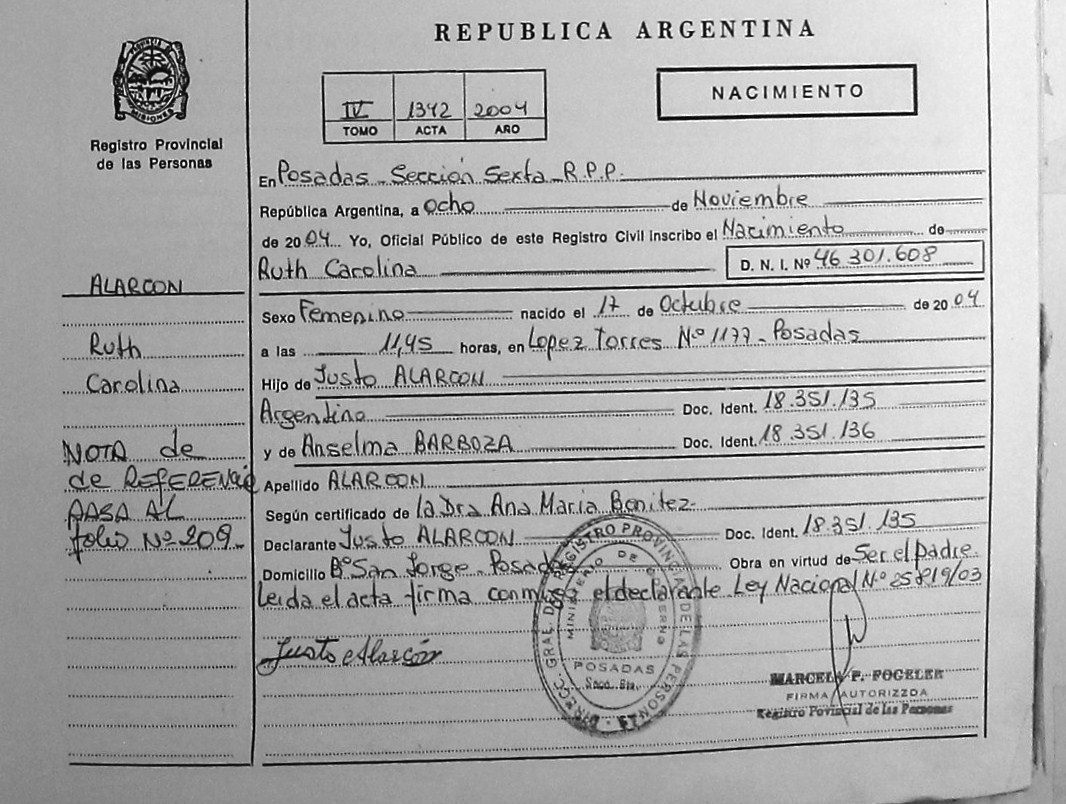 REPUBLICA ARGENTINA
PROVINCIA DE
MISIONES
Registro Provincial
de las Personas
IV 1342 2004
TOMO ACTA AÑO
NACIMIENTO
En Posadas - Sección Sexta R.P.P.
República Argentina, a Ocho de Noviembre
de 2004 Yo, Oficial Público de este Registro Civil inscribo el Nacimiento de
Ruth Carolina D. N. I. Nº 46 301.608
Sexo Femenino nacido el 17 de Octubre de 2004
a las 11,45 horas, en Lopez Torres Nº 1177 - Posadas
Hijo de Justo ALARCON
Argentino Doc. Ident. 18.351.135
y de Anselma BARBOZA Doc. Ident. 18.351.136
Apellido ALARCON
Según certificado de la Dra Ana Maria Benitez-
Declarante Justo ALARCON Doc. Ident. 18.351.135
Domicilio Bº San Jorge - Posadas Obra en virtud de Ser el padre.
Leida el acta firma conmigo el declarante Ley Nacional Nº 25819/03
Justo Alarcón
ALARCON
Ruth
Carolina
NOTA de
de REFERENCIA
PASA AL
folio Nº 209-
DIRECC. GRAL. DEL REGISTRO PROVINCIAL DE LAS PERSONAS
MINISTERIO DE GOBIERNO
POSADAS
Secc. 6ta.
MARCELA F. FOGELER
FIRMA AUTORIZZDA
Registro Povincial de las Personas